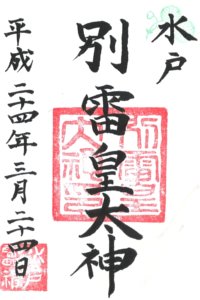 水戸
別雷皇太神
平成二十四年三月二十四日